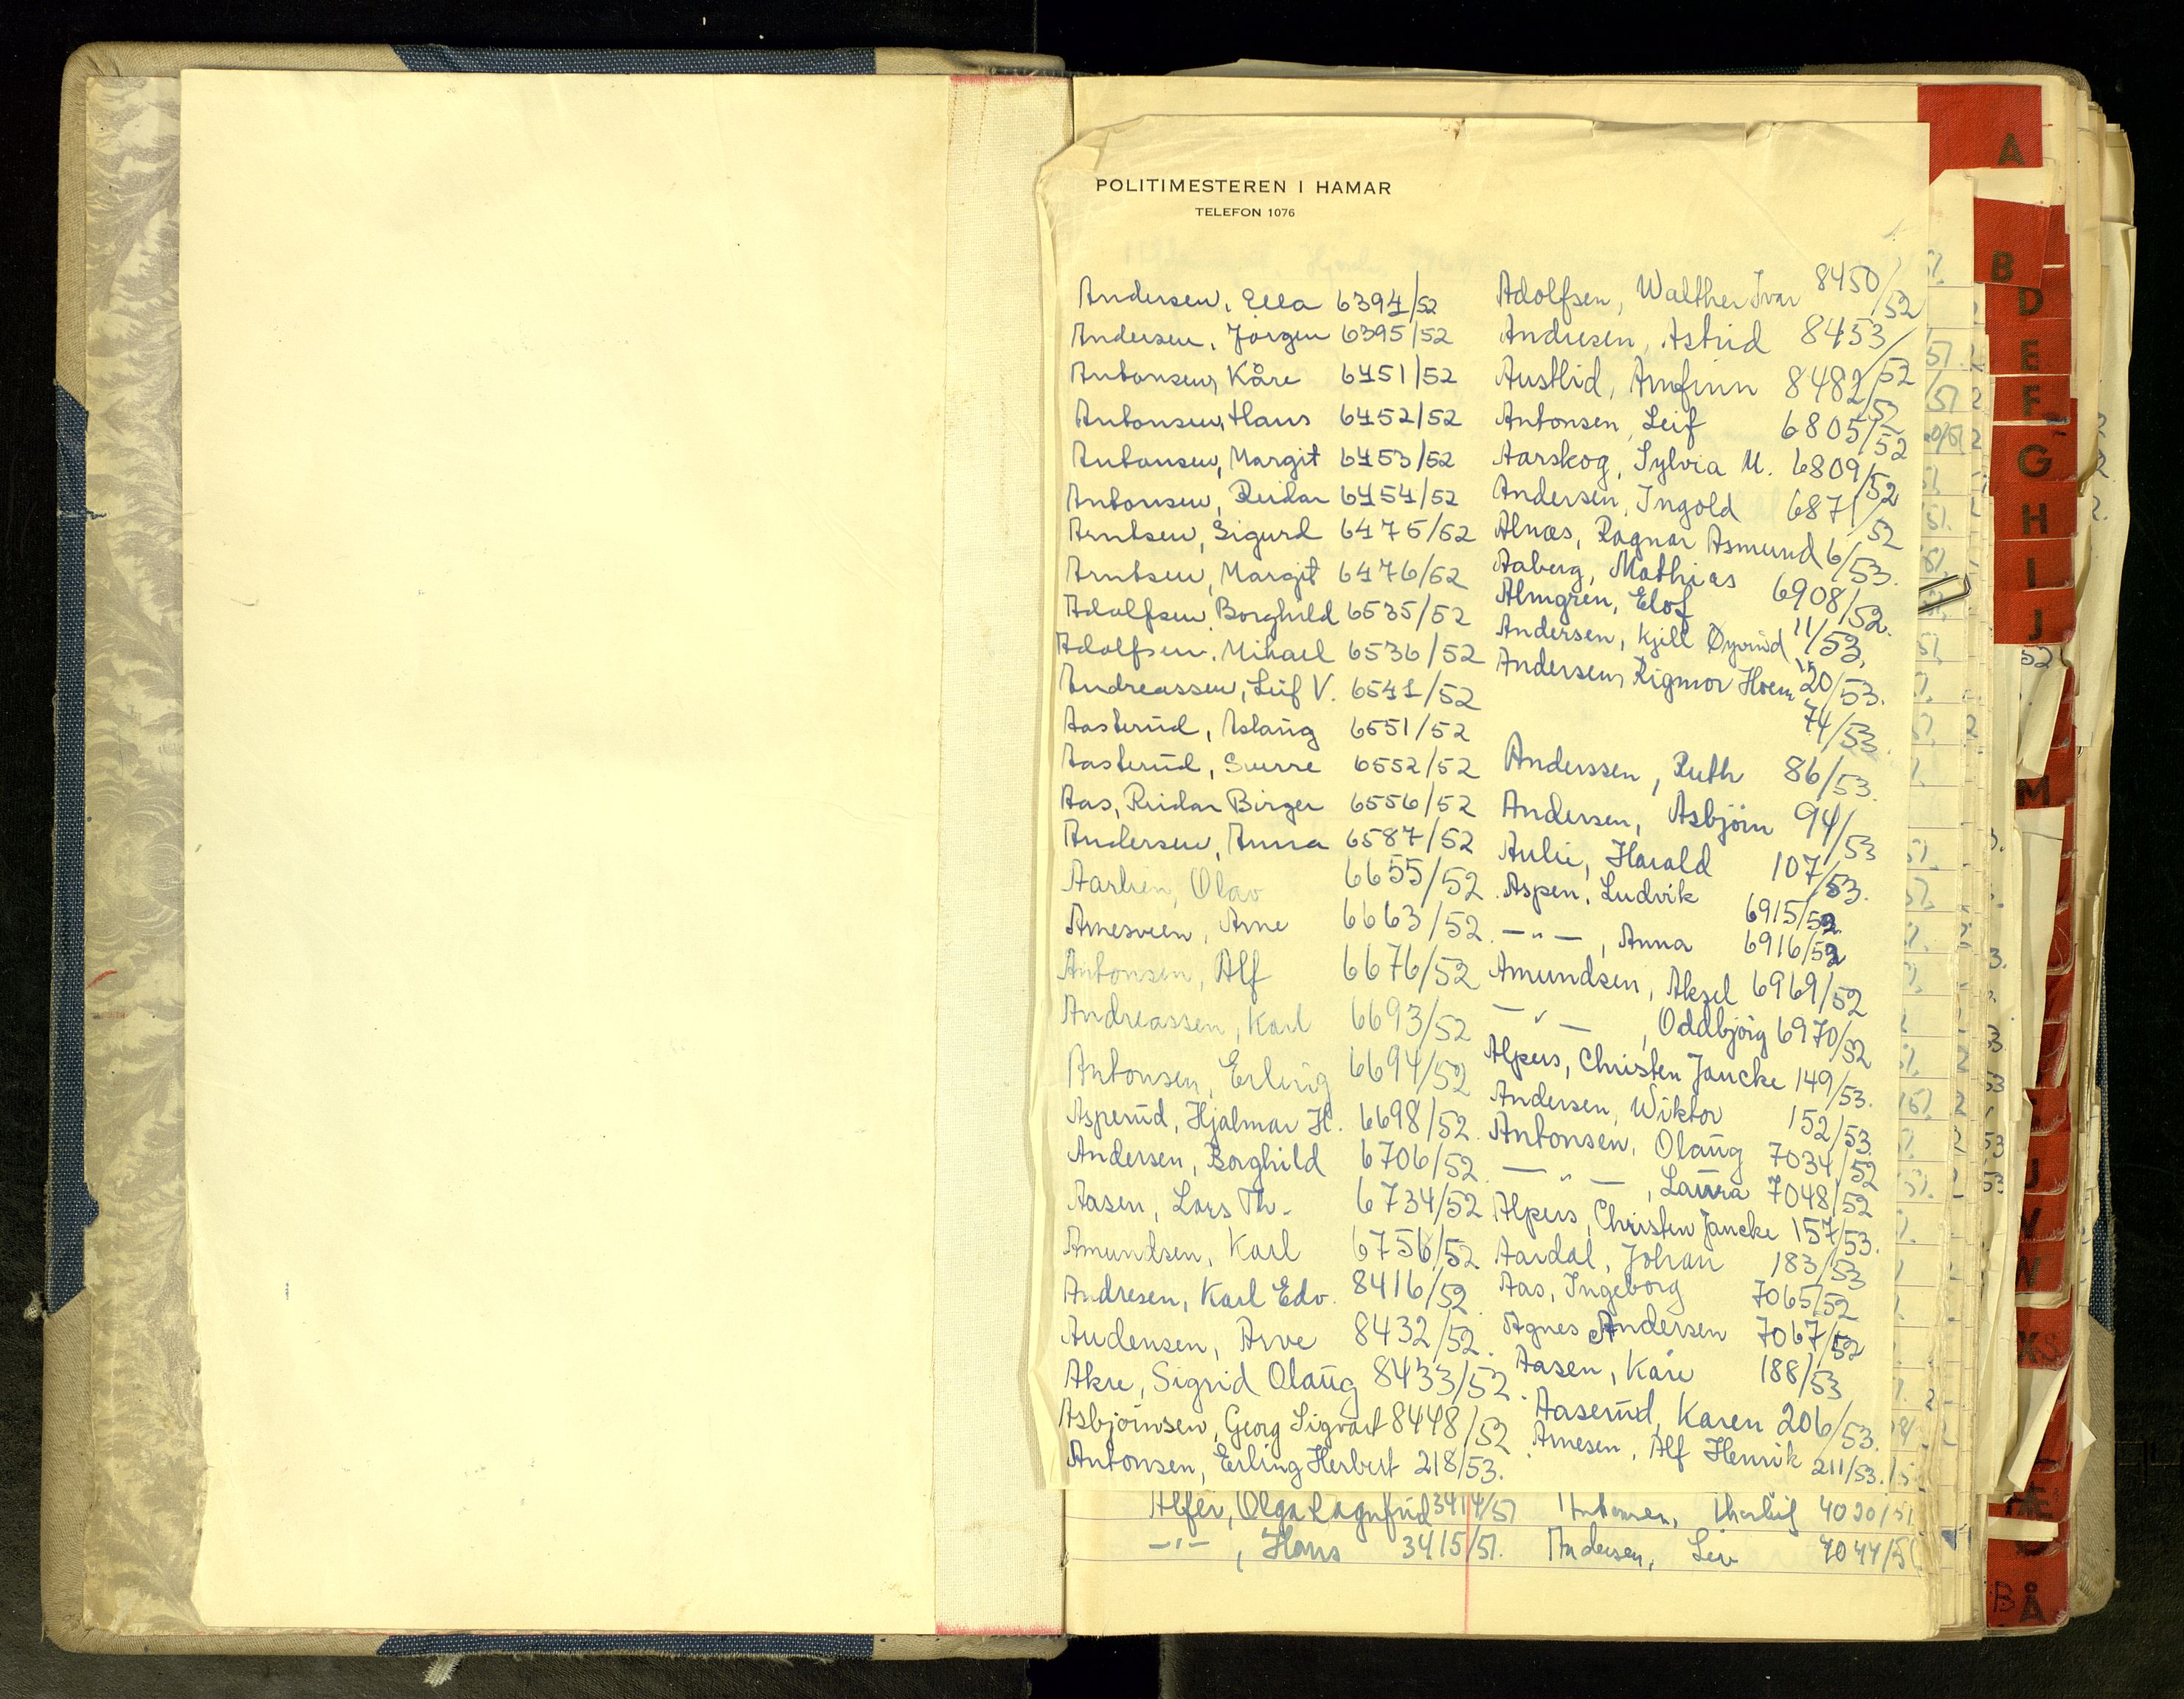 POLITIMESTEREN I HAMAR
TELEFON 1076
Andersen, Ella 6394/52
Andersen, Jörgen 6395/52
Antonsen, Kåre 6451/52
Antonsen, Hans 6452/52
Antonsen, Margit 6453/52
Antonsen, Reidar 6454/52
Arntsen, Sigurd 6475/52
Arntsen, Margit 6476/52
Adolfsen, Borghild 6535/52
Adolfsen, Mikael 6536/52
Andreassen, Leif V. 6541/52
Aasterud, Aslaug 6551/52
Aasterud, Sverre 6552/52
Aas, Reidar Birger 6556/52
Andersen, Anna 6587/52
Olav 6655/52
Arnesveen, Arne 6663/52
Antonsen, Alf 6676/52
Andreassen, Karl 6693/52
Antonsen, Erling 6694/52
Asperud, Hjalmar H. 6698/52
Andersen, Borghild 6706/52
Aasen, Lars Th. 6734/52
Amundsen, Karl 6756/52
Andresen, Karl Edv. 8416/52
Audensen, Arve 8432/52
Akre, Sigrid Olaug 8433/52
Asbjörnsen, Georg Sigvart 8448/52
Antonsen, Erling Herbert 218/53.
Adolfsen, Walther Ivar 8450/52
Andresen, Astrid 8453/52
Austlid, Arnfinn 8482/52
Antonsen, Leif 6805/52
Aarskog, Sylvia M. 6809/52
Andersen, Ingold 6871/52
Alnæs, Ragnar Asmund 6/53.
Aaberg, Mathias 6908/52.
Almgren, Elof 11/53.
Andersen, Kjell Øyvind 20/53.
Andersen, Rigmor Hoem 74/53
Anderssen, Ruth 86/53.
Andersen, Asbjörn 94/53
Aulie, Harald 107/53.
Aspen, Ludvik 6915/52
—"—, Anna 6916/52
Amundsen, Aksel 6969/52
—"—, Oddbjörg 6970/52
Alpers, Christen Jancke 149/53.
Andersen, Wiktor 152/53
Antonsen, Olaug 7034/52
—"—, Laura 7048/52
Alpers, Christen Jancke 157/53.
Aardal, Johan 183/53
Aas, Ingeborg 7065/52
Agnes Andersen 7067/52
Aasen, Kåre 188/53
Aaserud, Karen 206/53.
Arnesen, Alf Henrik 211/53.
Alfei, Olga Ragnfrid 3414/51
—"—, Hans 3415/51.
Antonsen, Thorleif 4020/51
Andersen, Liv 4044/51
A
B
D
E
F
G
H
I
J
M
U
V
W
Å